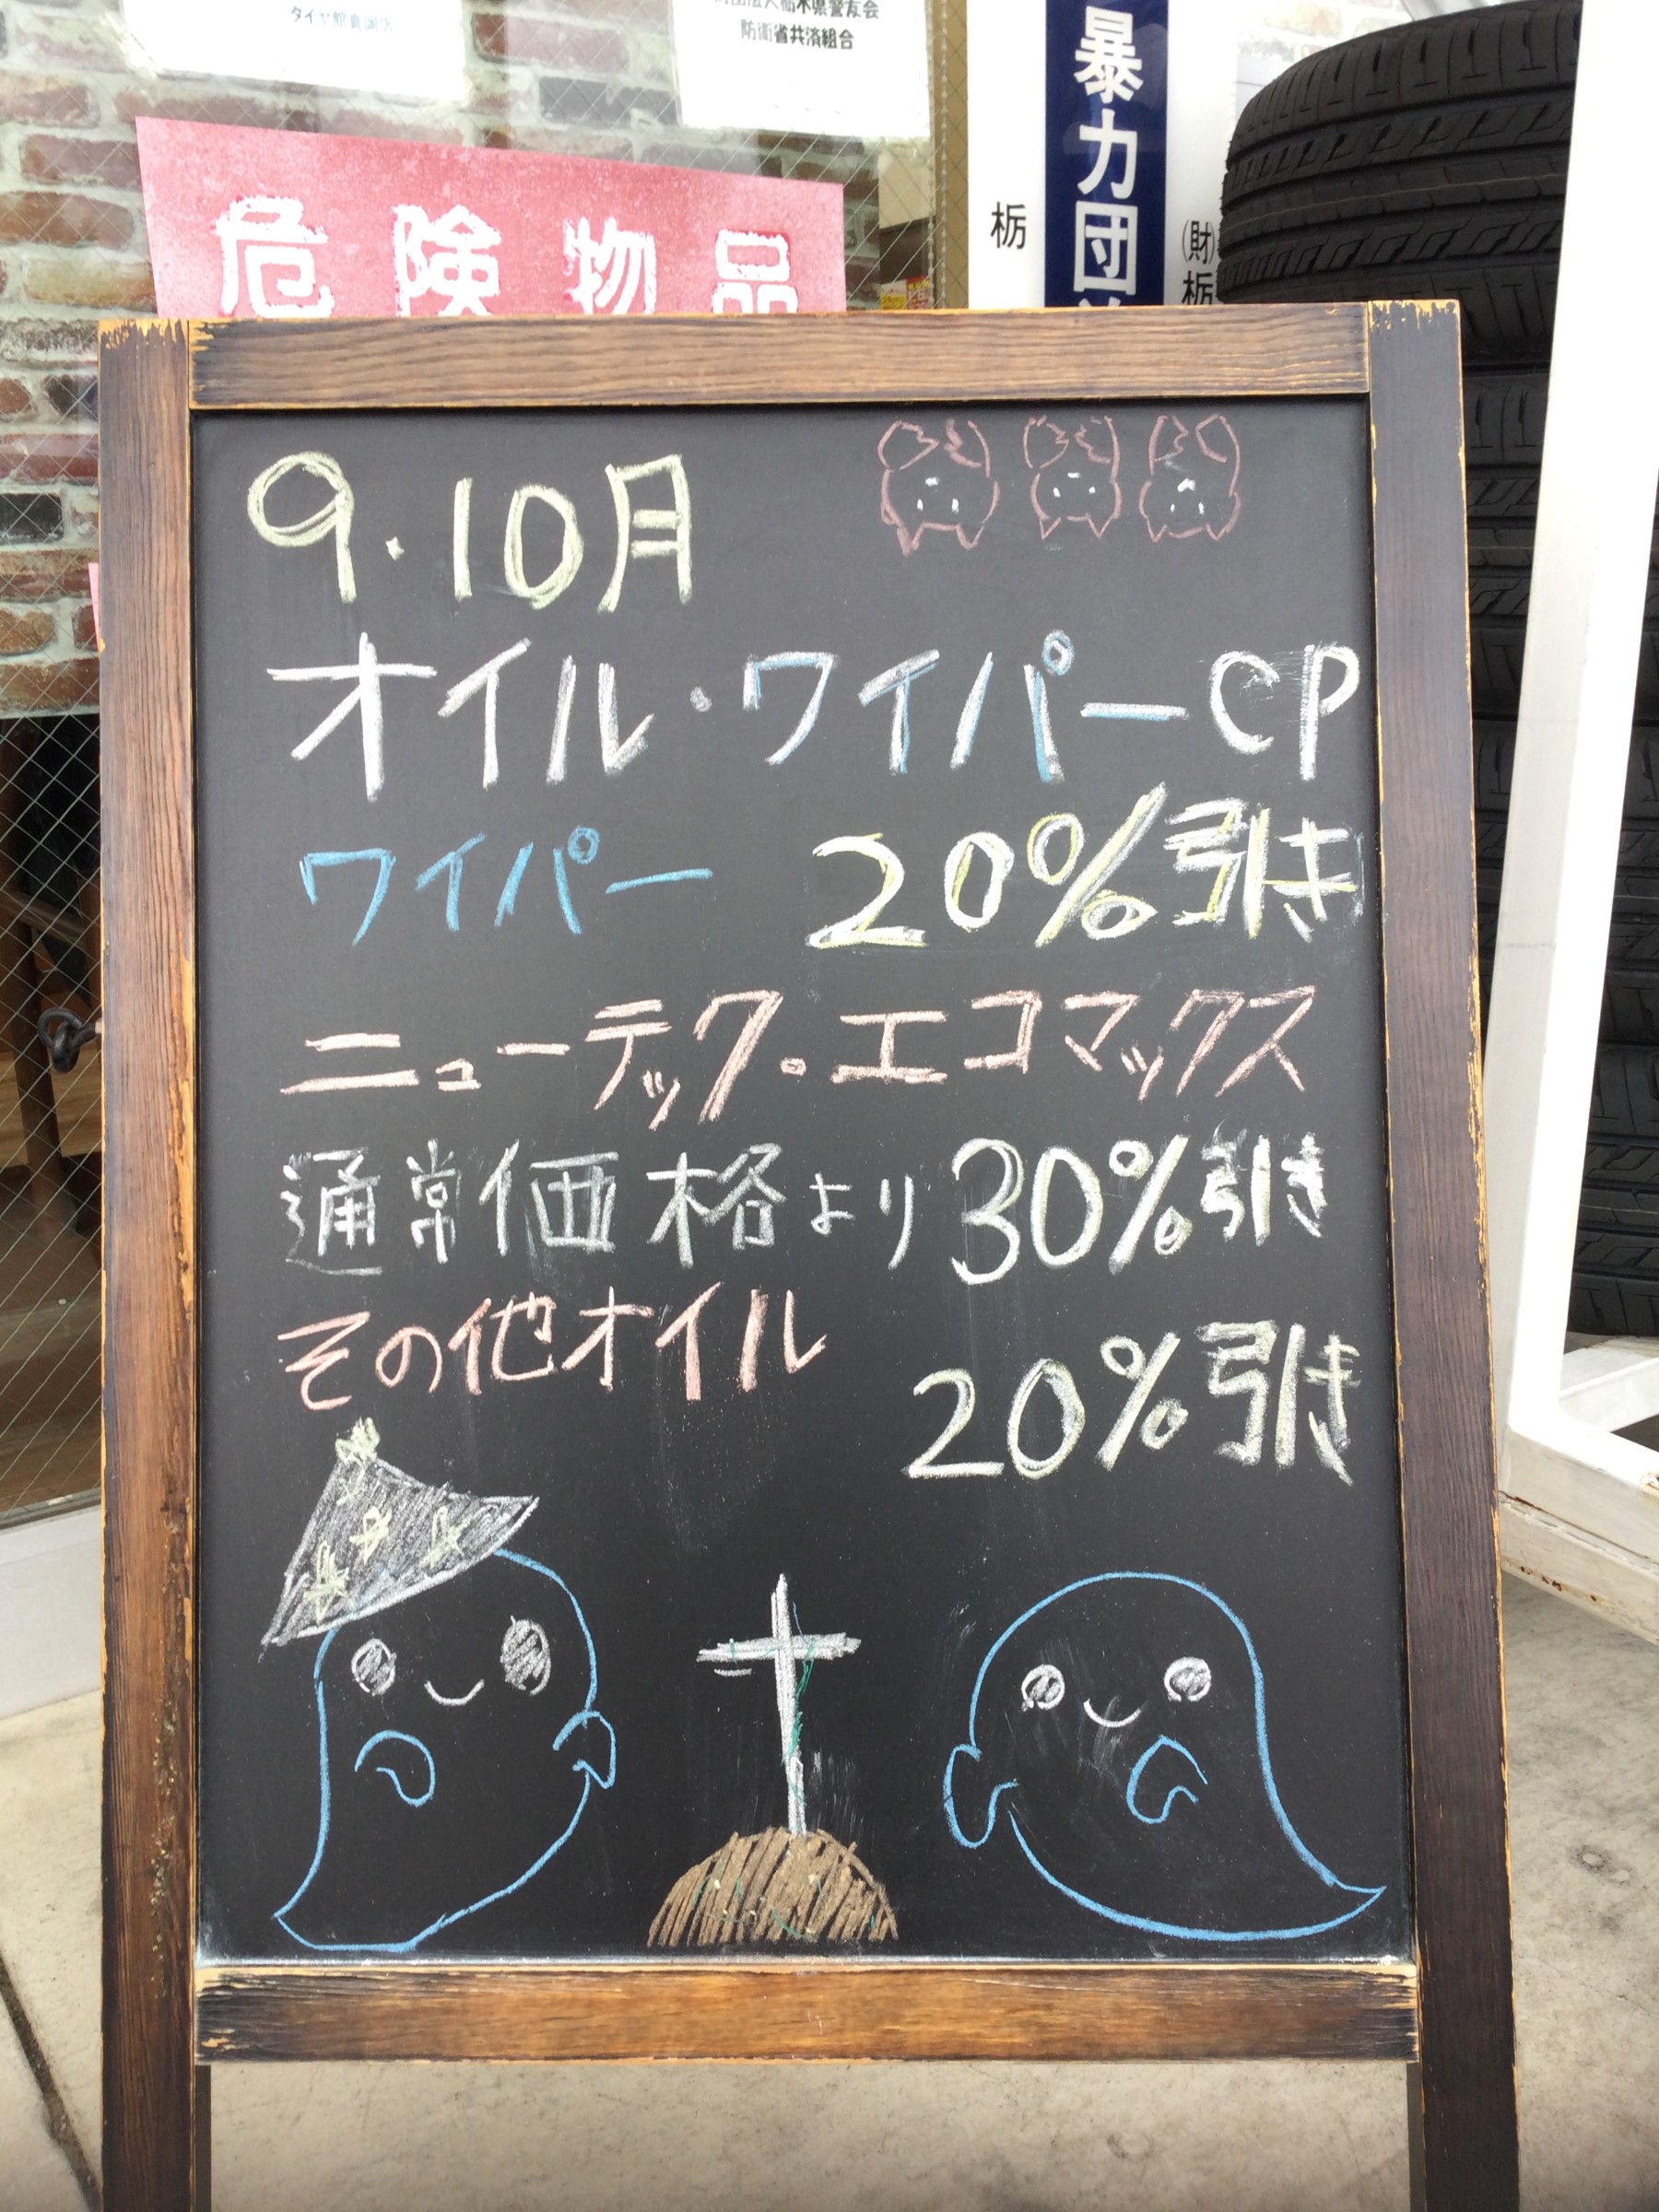 タイヤ館真岡店
財団法人栃木県警友会
防衛省共済組合
暴力団
栃
(財)
栃
危険物品
9.10月
オイル・ワイパーCP
ワイパー 20%引き
ニューテック・エコマックス
通常価格より30%引き
その他オイル
20%引き